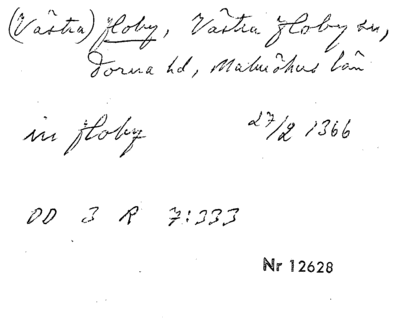 (Västra) floby, Västra floby sn,
Torna hd, Malmöhus län
in floby 27/2 1366
DD 3 R 7:333
Nr 12628